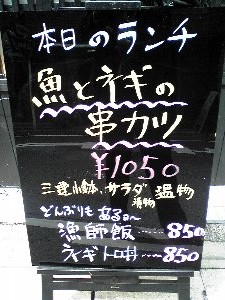 本日のランチ
魚とネギの
串カツ
¥1050
小鉢、サラダ
漬物 温物
どんぶりも あるヨ〜
漁師飯 ---- 850
ネギトロ丼 ---- 850